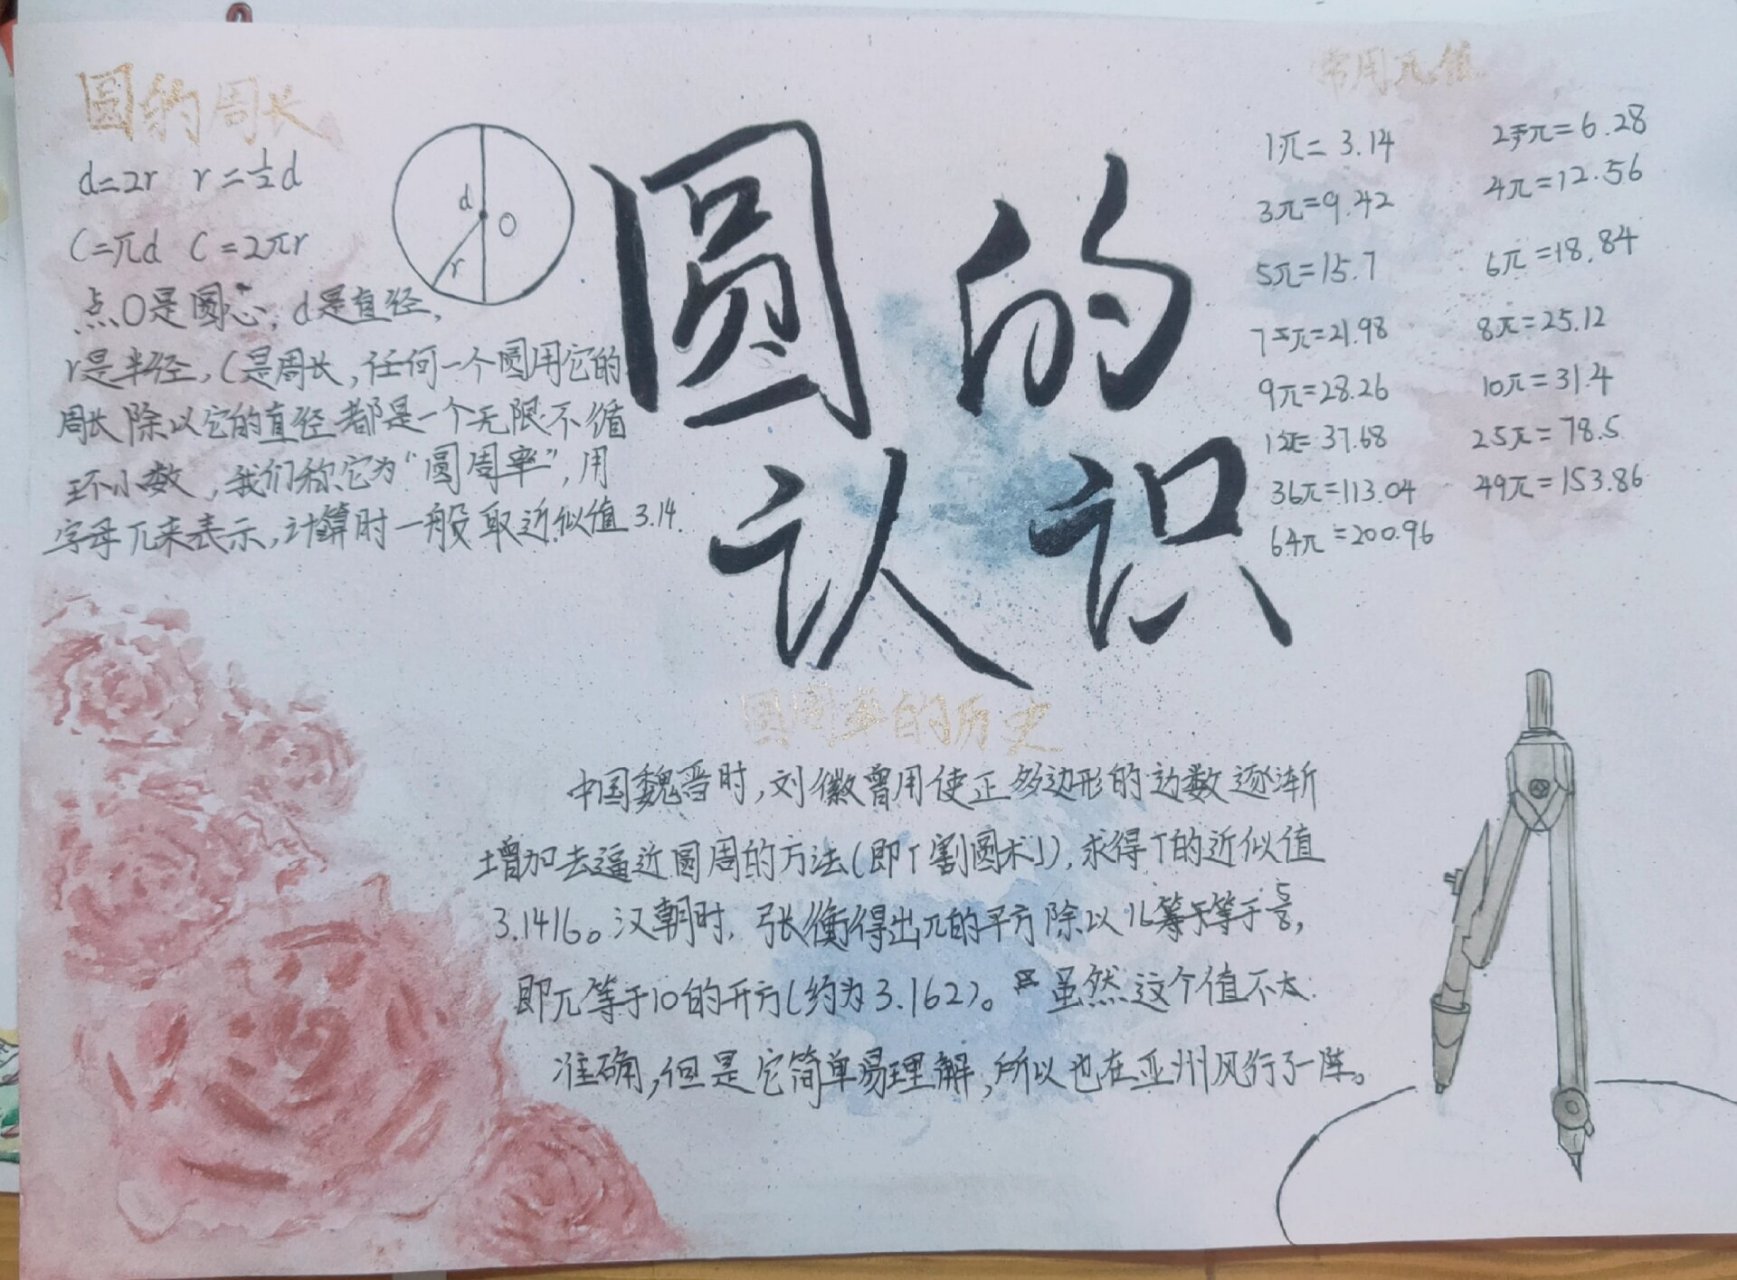 圆的周长
d=2r r=½d
C=πd C=2πr
d
O
r
点O是圆心，d是直径，
r是半径，C是周长，任何一个圆用它的
周长除以它的直径都是一个无限不循
环小数，我们称它为“圆周率”，用
字母π来表示，计算时一般取近似值3.14.
圆的
认识
常用π值
1π=3.14 2π=6.28
3π=9.42 4π=12.56
5π=15.7 6π=18.84
7π=21.98 8π=25.12
9π=28.26 10π=31.4
12π=37.68 25π=78.5
36π=113.04 49π=153.86
64π=200.96
圆周率的历史
中国魏晋时，刘徽曾用使正多边形的边数逐渐
增加去逼近圆周的方法(即「割圆术」)，求得π的近似值
3.1416。汉朝时，张衡得出π的平方除以16等于5/8，
即π等于10的开方(约为3.162)。虽然这个值不太
准确，但是它简单易理解，所以也在亚州风行了一阵。